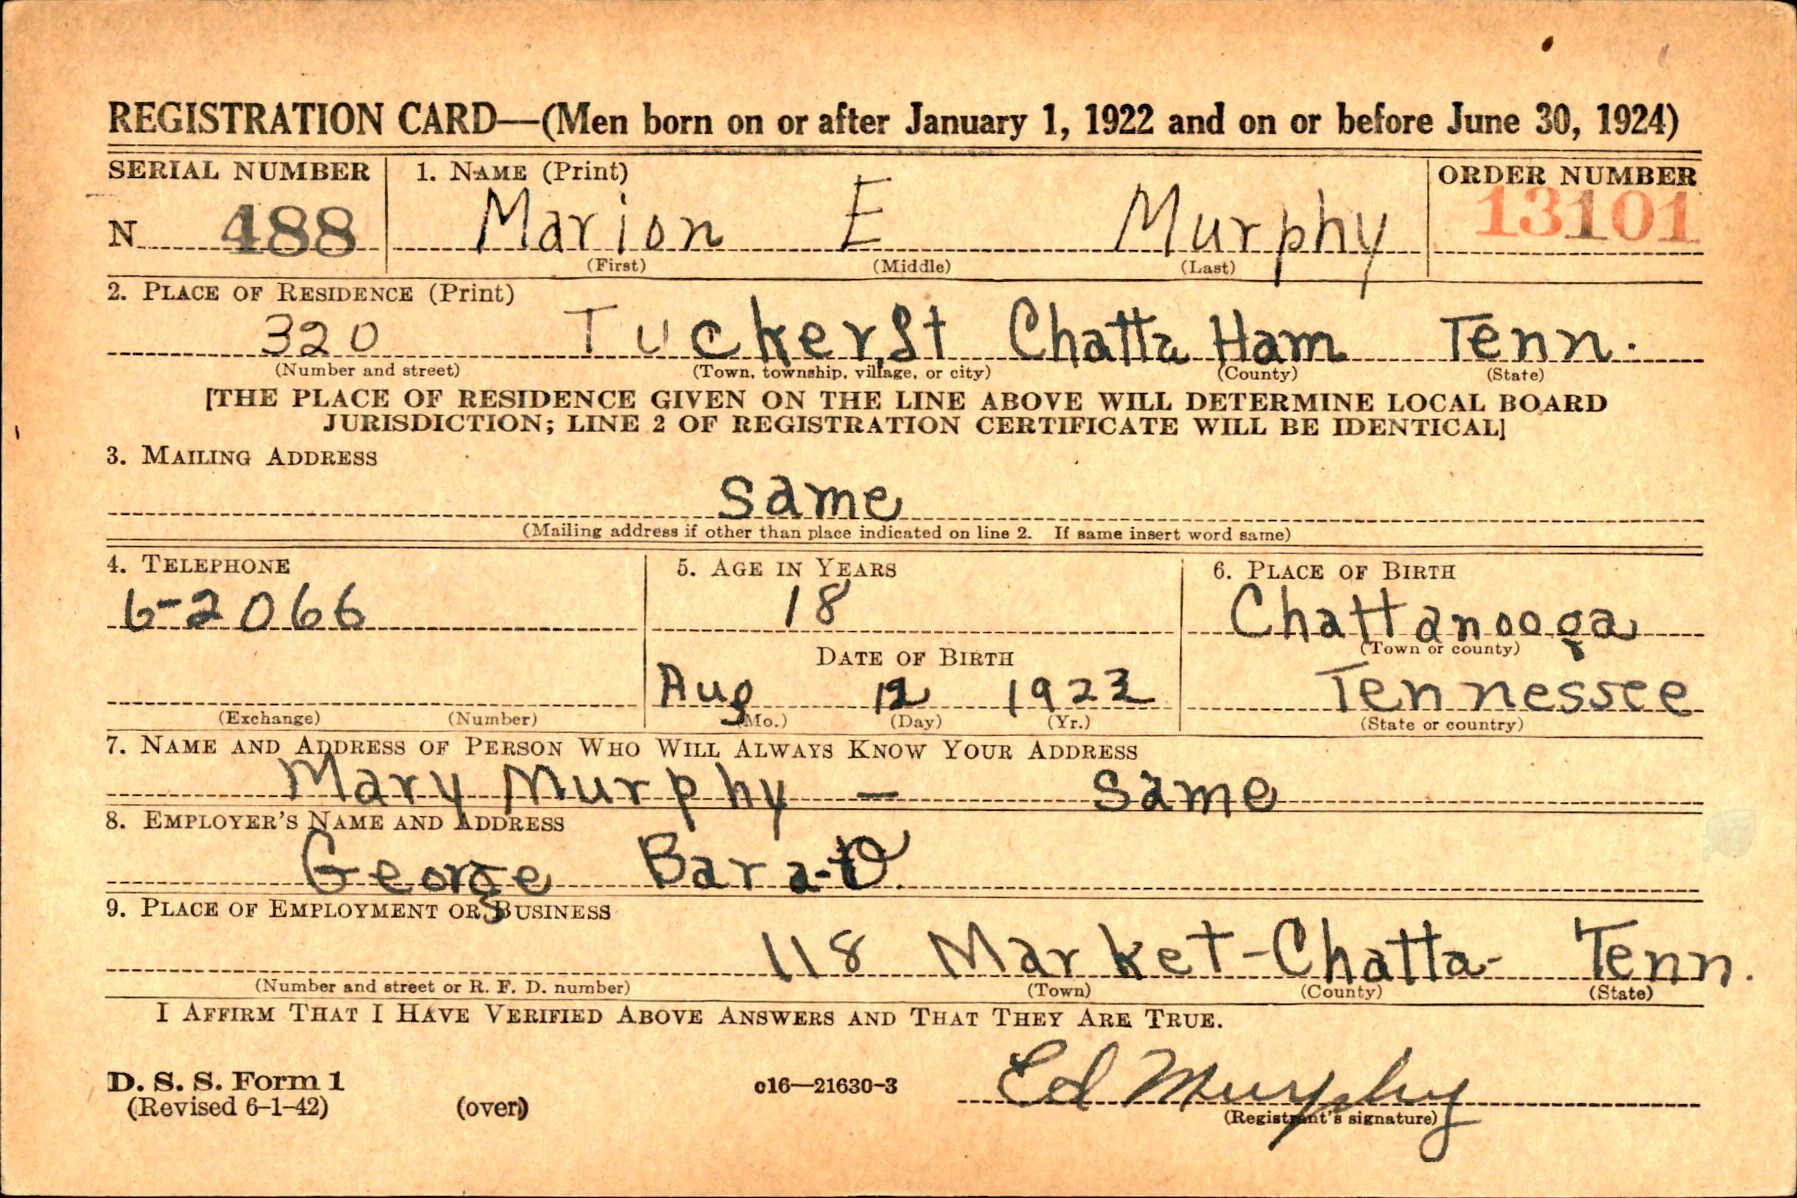 REGISTRATION CARD—(Men born on or after January 1, 1922 and on or before June 30, 1924)
SERIAL NUMBER 1. NAME (Print) ORDER NUMBER
N 488 Marion E Murphy 13101
(First) (Middle) (Last)
2. PLACE OF RESIDENCE (Print)
320 Tucker St Chatta Ham Tenn.
(Number and street) (Town, township, village, or city) (County) (State)
[THE PLACE OF RESIDENCE GIVEN ON THE LINE ABOVE WILL DETERMINE LOCAL BOARD
JURISDICTION; LINE 2 OF REGISTRATION CERTIFICATE WILL BE IDENTICAL]
3. MAILING ADDRESS
Same
(Mailing address if other than place indicated on line 2. If same insert word same)
4. TELEPHONE 5. AGE IN YEARS 6. PLACE OF BIRTH
6-2066 18 Chattanooga
DATE OF BIRTH (Town or county)
Aug 12 1923 Tennessee
(Exchange) (Number) (Mo.) (Day) (Yr.) (State or country)
7. NAME AND ADDRESS OF PERSON WHO WILL ALWAYS KNOW YOUR ADDRESS
Mary Murphy — Same
8. EMPLOYER'S NAME AND ADDRESS
George
9. PLACE OF EMPLOYMENT OR BUSINESS
118 Market-Chatta- Tenn.
(Number and street or R. F. D. number) (Town) (County) (State)
I AFFIRM THAT I HAVE VERIFIED ABOVE ANSWERS AND THAT THEY ARE TRUE.
Ed Murphy
D. S. S. Form 1 c16—21630-3
(Revised 6-1-42) (over) (Registrant's signature)